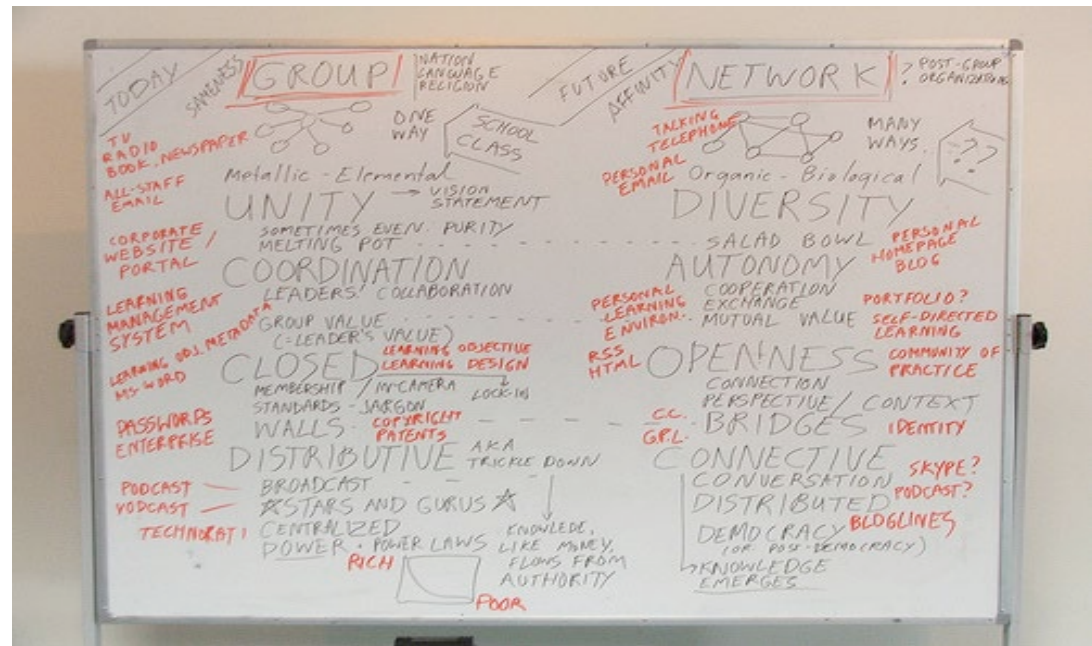 TODAY
SAMENESS
GROUP
NATION
LANGUAGE
RELIGION
ONE
WAY
SCHOOL
CLASS
TV
RADIO
BOOK, NEWSPAPER
ALL-STAFF
EMAIL
Metallic - Elemental
UNITY → VISION
STATEMENT
SOMETIMES EVEN. PURITY
MELTING POT
CORPORATE
WEBSITE /
PORTAL
COORDINATION
LEADERS! COLLABORATION
LEARNING
MANAGEMENT
SYSTEM
GROUP VALUE
(=LEADER'S VALUE)
LEARNING OBJ. METADATA
MS-WORD
CLOSED
LEARNING OBJECTIVE
LEARNING DESIGN
LOCK-IN
MEMBERSHIP / IN CAMERA
STANDARDS - JARGON
WALLS
COPYRIGHT
PATENTS
PASSWORDS
ENTERPRISE
DISTRIBUTIVE AKA
TRICKLE DOWN
PODCAST
VODCAST
BROADCAST
☆STARS AND GURUS☆
TECHNORATI
CENTRALIZED
POWER · POWER LAWS
RICH
POOR
KNOWLEDE,
LIKE MONEY,
FLOWS FROM
AUTHORITY
FUTURE
AFFINITY
NETWORK
? POST-GROUP
TALKING
TELEPHONE
MANY
WAYS.
??
PERSONAL
EMAIL
Organic - Biological
DIVERSITY
SALAD BOWL
PERSONAL
HOMEPAGE
BLOG
AUTONOMY
COOPERATION
EXCHANGE
MUTUAL VALUE
PERSONAL
LEARNING
ENVIRON.
PORTFOLIO?
SELF-DIRECTED
LEARNING
RSS
HTML
OPENNESS
COMMUNITY OF
PRACTICE
CONNECTION
PERSPECTIVE / CONTEXT
C.C.
G.P.L.
BRIDGES
IDENTITY
CONNECTIVE
CONVERSATION
SKYPE?
DISTRIBUTED
PODCAST?
DEMOCRACY
BLOGLINES
(OR POST-DEMOCRACY)
KNOWLEDGE
EMERGES